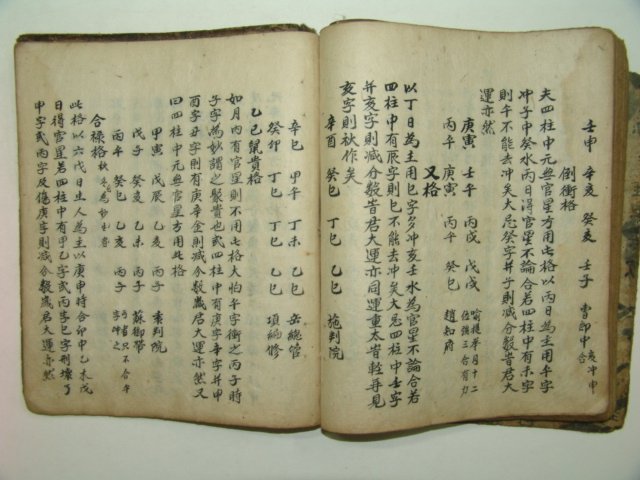 壬申 辛亥 癸亥 壬子 曺郎中
倒衝格
夫四柱中元無官星方用此格以丙日為主用午字
冲子中癸水丙日得官星不論合若四柱中有未字
則午不能去冲矣大忌癸字並子則減分數歲君大
運亦然
庚寅 壬午 丙戌 戊戌
丙午 庚寅 丙午 癸巳 趙知府
又格
以丁日為主用巳字多冲亥壬水為官星不論合若
四柱中有辰字則巳不能去冲矣大忌四柱中壬字
并亥字則減分數歲君大運亦同運重太歲輕再見
亥字則秋作矣
辛酉 癸巳 丁巳 乙巳 施判院
辛巳 甲午 丁未 乙巳 岳總管
癸卯 丁巳 丁巳 乙巳 項編修
乙巳鼠貴格
如月內有官星則不用此格大怕午字衝之丙子時
子字為妙謂之聚貴也或四柱中有庚字辛字并申
酉字丑字則有庚辛金則減分數歲君大運亦然又
曰四柱中元無官星方用此格
甲寅 戊辰 乙亥 丙子 李判院
戊子 癸亥 乙未 丙子 蘇御帶
丙午 癸巳 乙亥 丙子
合祿格
此格以六戊日生人為主以庚申時合卯中乙木戊
日得官星若四柱中有甲乙字或丙字巳字刑壞了
申字或丙字及傷庚字則減分數歲君大運亦然